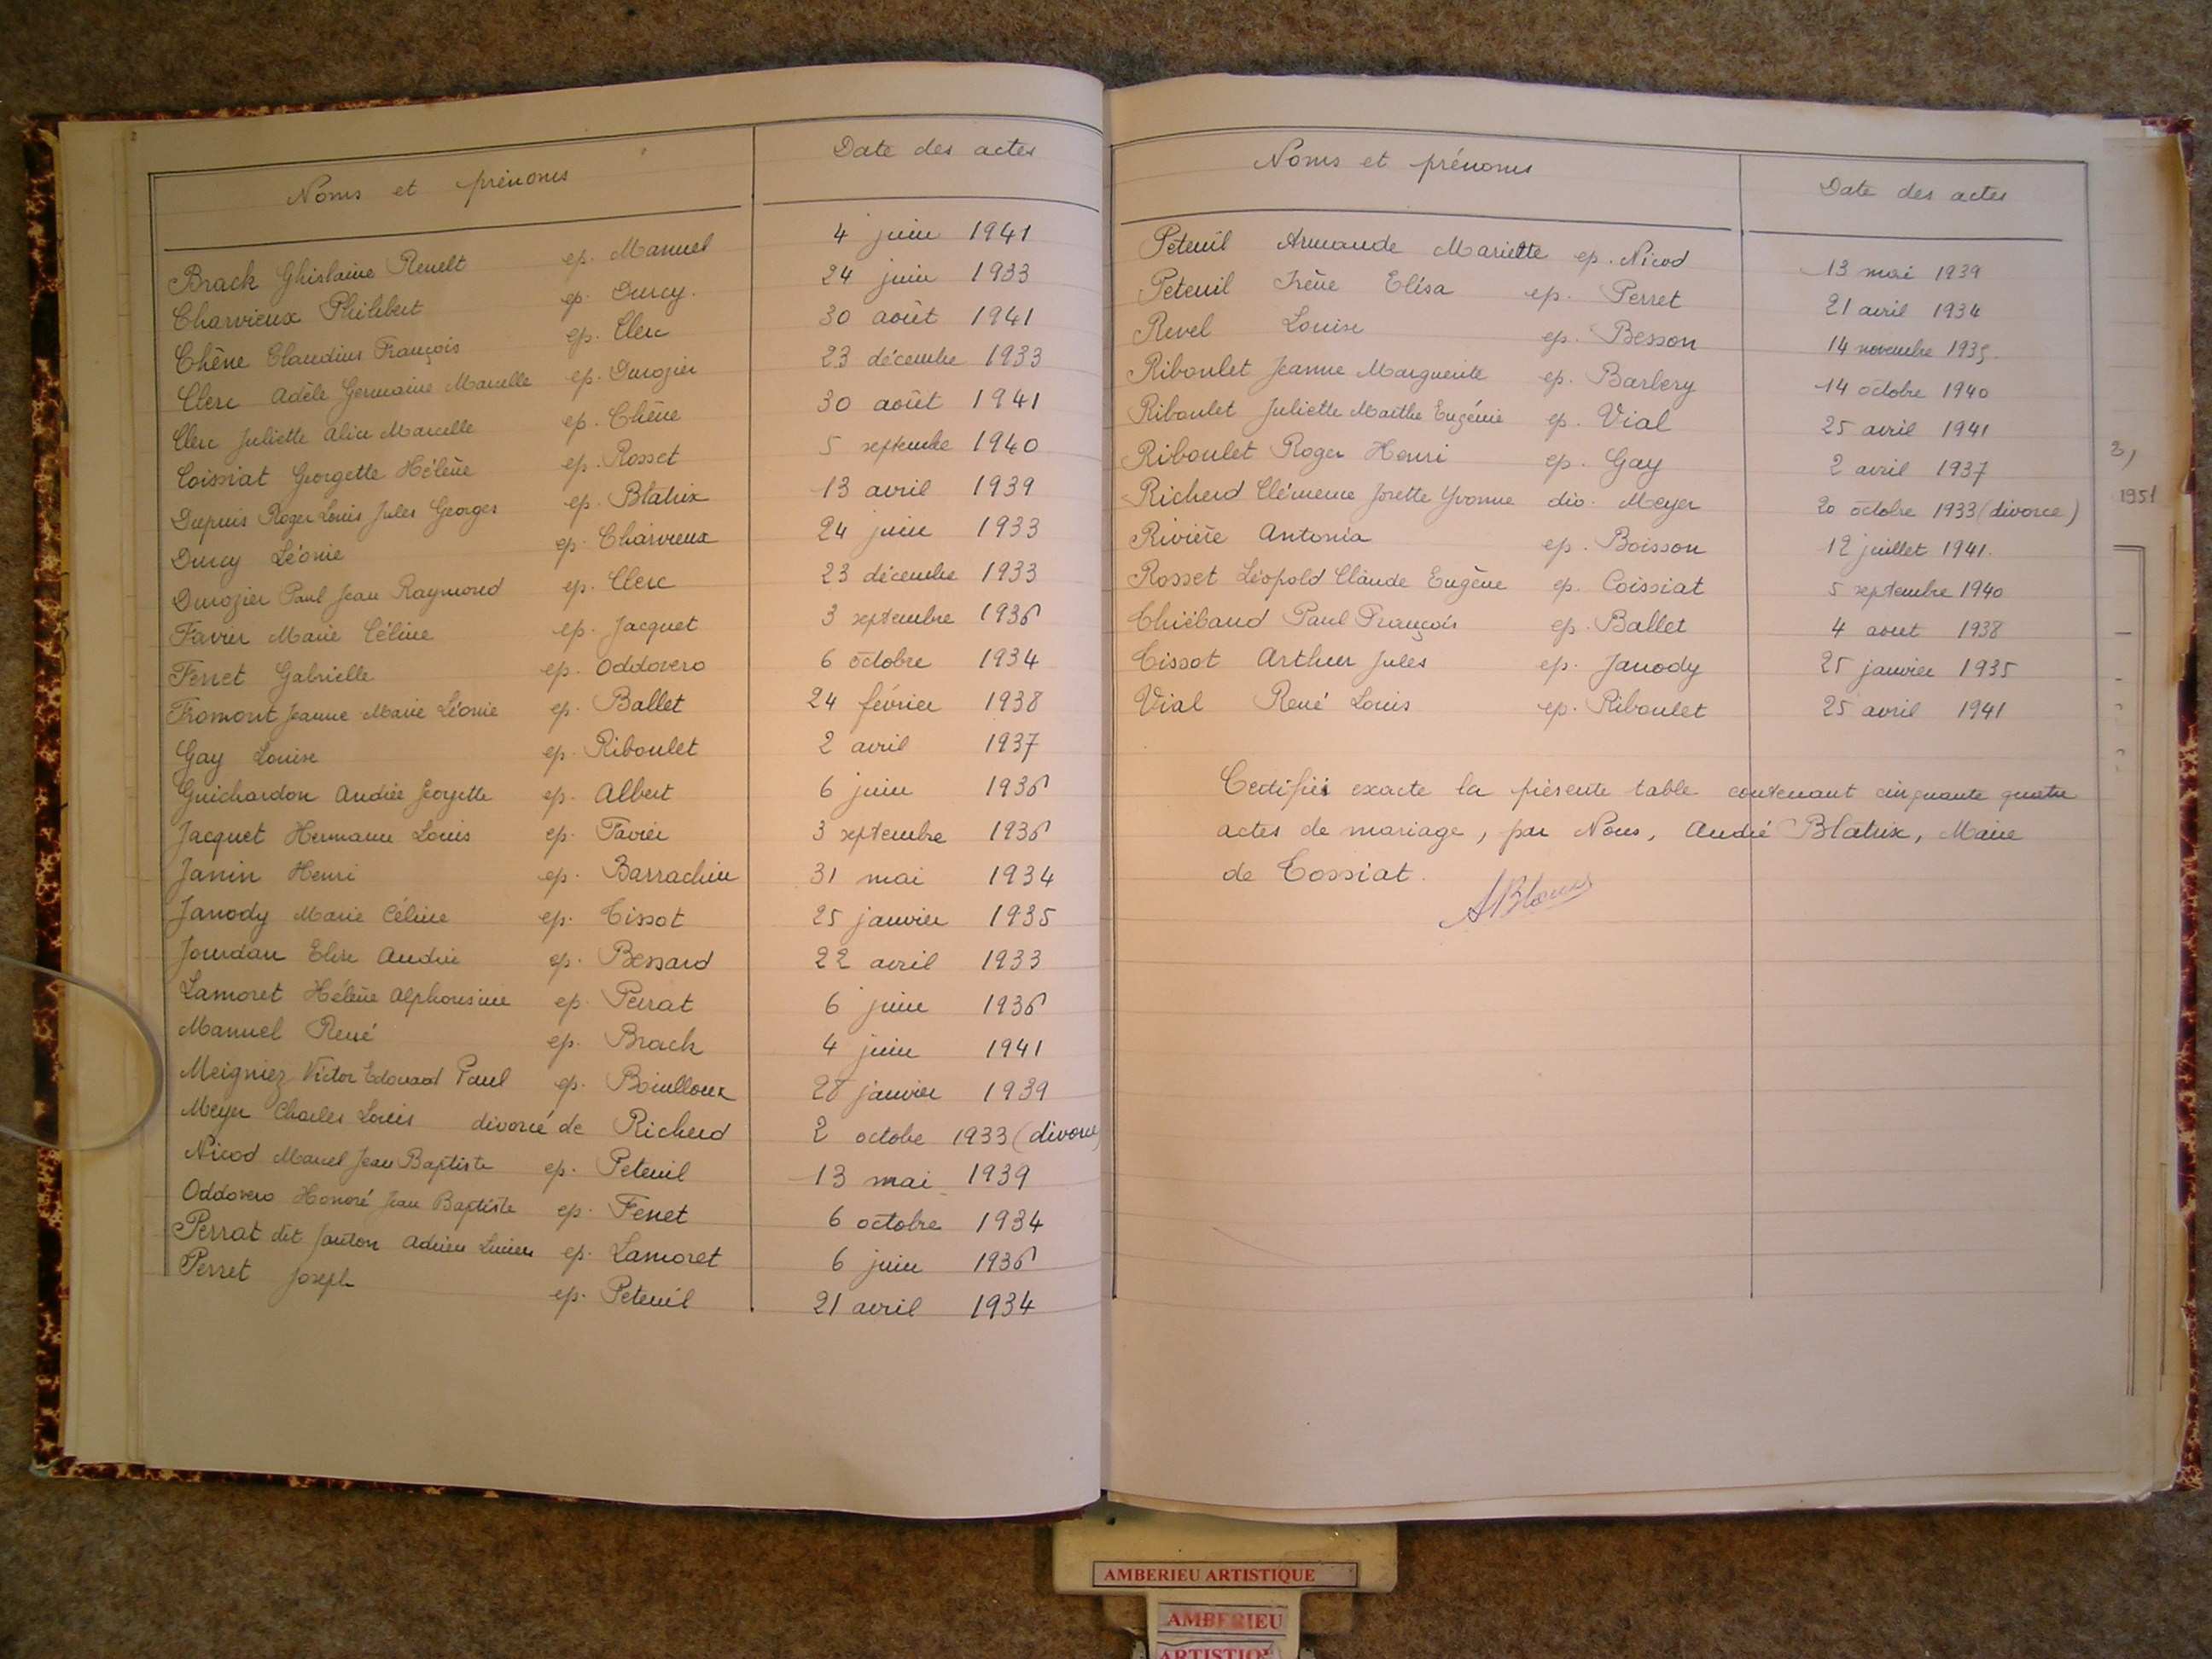 Noms et prénoms Date des actes
Brack Ghislaine Renelt ep. Manuel 4 juin 1941
Charvieux Philibert ep. Durcy. 24 juin 1933
Chêne Claudius François ep. Clerc 30 août 1941
Clerc Adèle Germaine Marcelle ep. Durozier 23 décembre 1933
Clerc Juliette Alice Marcelle ep. Chêne 30 août 1941
Coissiat Georgette Hélène ep. Rosset 5 septembre 1940
Dupuis Roger Louis Jules Georges ep. Blatrix 13 avril 1939
Durcy Léonie ep. Charvieux 24 juin 1933
Durozier Paul Jean Raymond ep. Clerc 23 décembre 1933
Favier Marie Céline ep. Jacquet 3 septembre 1936
Ferret Gabrielle ep. Oddovero 6 octobre 1934
Fromont Jeanne Marie Léonie ep. Ballet 24 février 1938
Gay Louise ep. Riboulet 2 avril 1937
Guichardon Andrée Georgette ep. Albert 6 juin 1936
Jacquet Hermann Louis ep. Favier 3 septembre 1936
Janin Henri ep. Barrachin 31 mai 1934
Janody Marie Céline ep. Tissot 25 janvier 1935
Jourdan Elise Andrée ep. Bessard 22 avril 1933
Lamoret Hélène Alphonsine ep. Perrat 6 juin 1936
Manuel René ep. Brack 4 juin 1941
Meigniez Victor Edouard Paul ep. janvier 1939
Meyer Charles Louis divorcé de Richerd 2 octobre 1933 (divorce)
Nicod Marcel Jean Baptiste ep. Peteuil 13 mai 1939
Oddovero Honoré Jean Baptiste ep. Ferret 6 octobre 1934
Perrat dit Janton Adrien Lucien ep. Lamoret 6 juin 1936
Perret Joseph ep. Peteuil 21 avril 1934
Noms et prénoms Date des actes
Peteuil Armande Mariette ep. Nicod 13 mai 1939
Peteuil Irène Elisa ep. Perret 21 avril 1934
Revel Louise ep. Besson 14 novembre 1935
Riboulet Jeanne Marguerite ep. Barbery 14 octobre 1940
Riboulet Juliette Marthe Eugénie ep. Vial 25 avril 1941
Riboulet Roger Henri ep. Gay 2 avril 1937
Richerd Clémence Josette Yvonne div. Meyer 20 octobre 1933 (divorce)
Rivière Antonia ep. Boisson 12 juillet 1941.
Rosset Léopold Claude Eugène ep. Coissiat 5 septembre 1940
Thiébaud Paul François ep. Ballet 4 aout 1938
Tissot Arthur Jules ep. Janody 25 janvier 1935
Vial René Louis ep. Riboulet 25 avril 1941
Certifiée exacte la présente table contenant cinquante quatre
actes de mariage, par Nous, André Blatrix, Maire
de Tossiat.
1951
AMBERIEU ARTISTIQUE
AMBERIEU
ARTISTIQUE